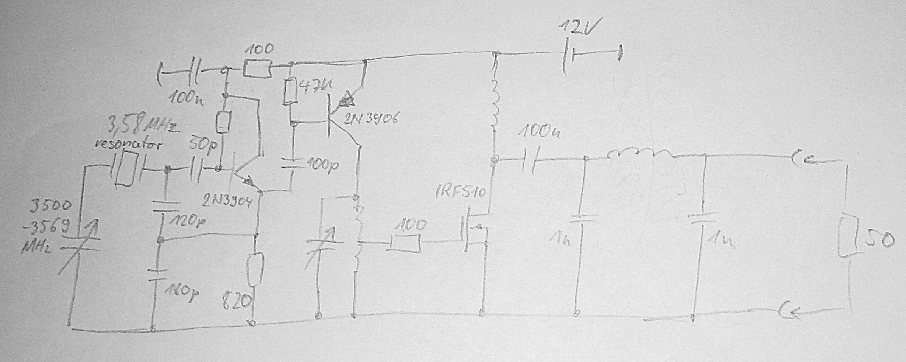 100
12V
100n
47K
2N3906
3,58MHz
resonator
50p
100p
2N3904
3500
-3569
MHz
120p
820
100n
IRF510
100
1n
1n
50